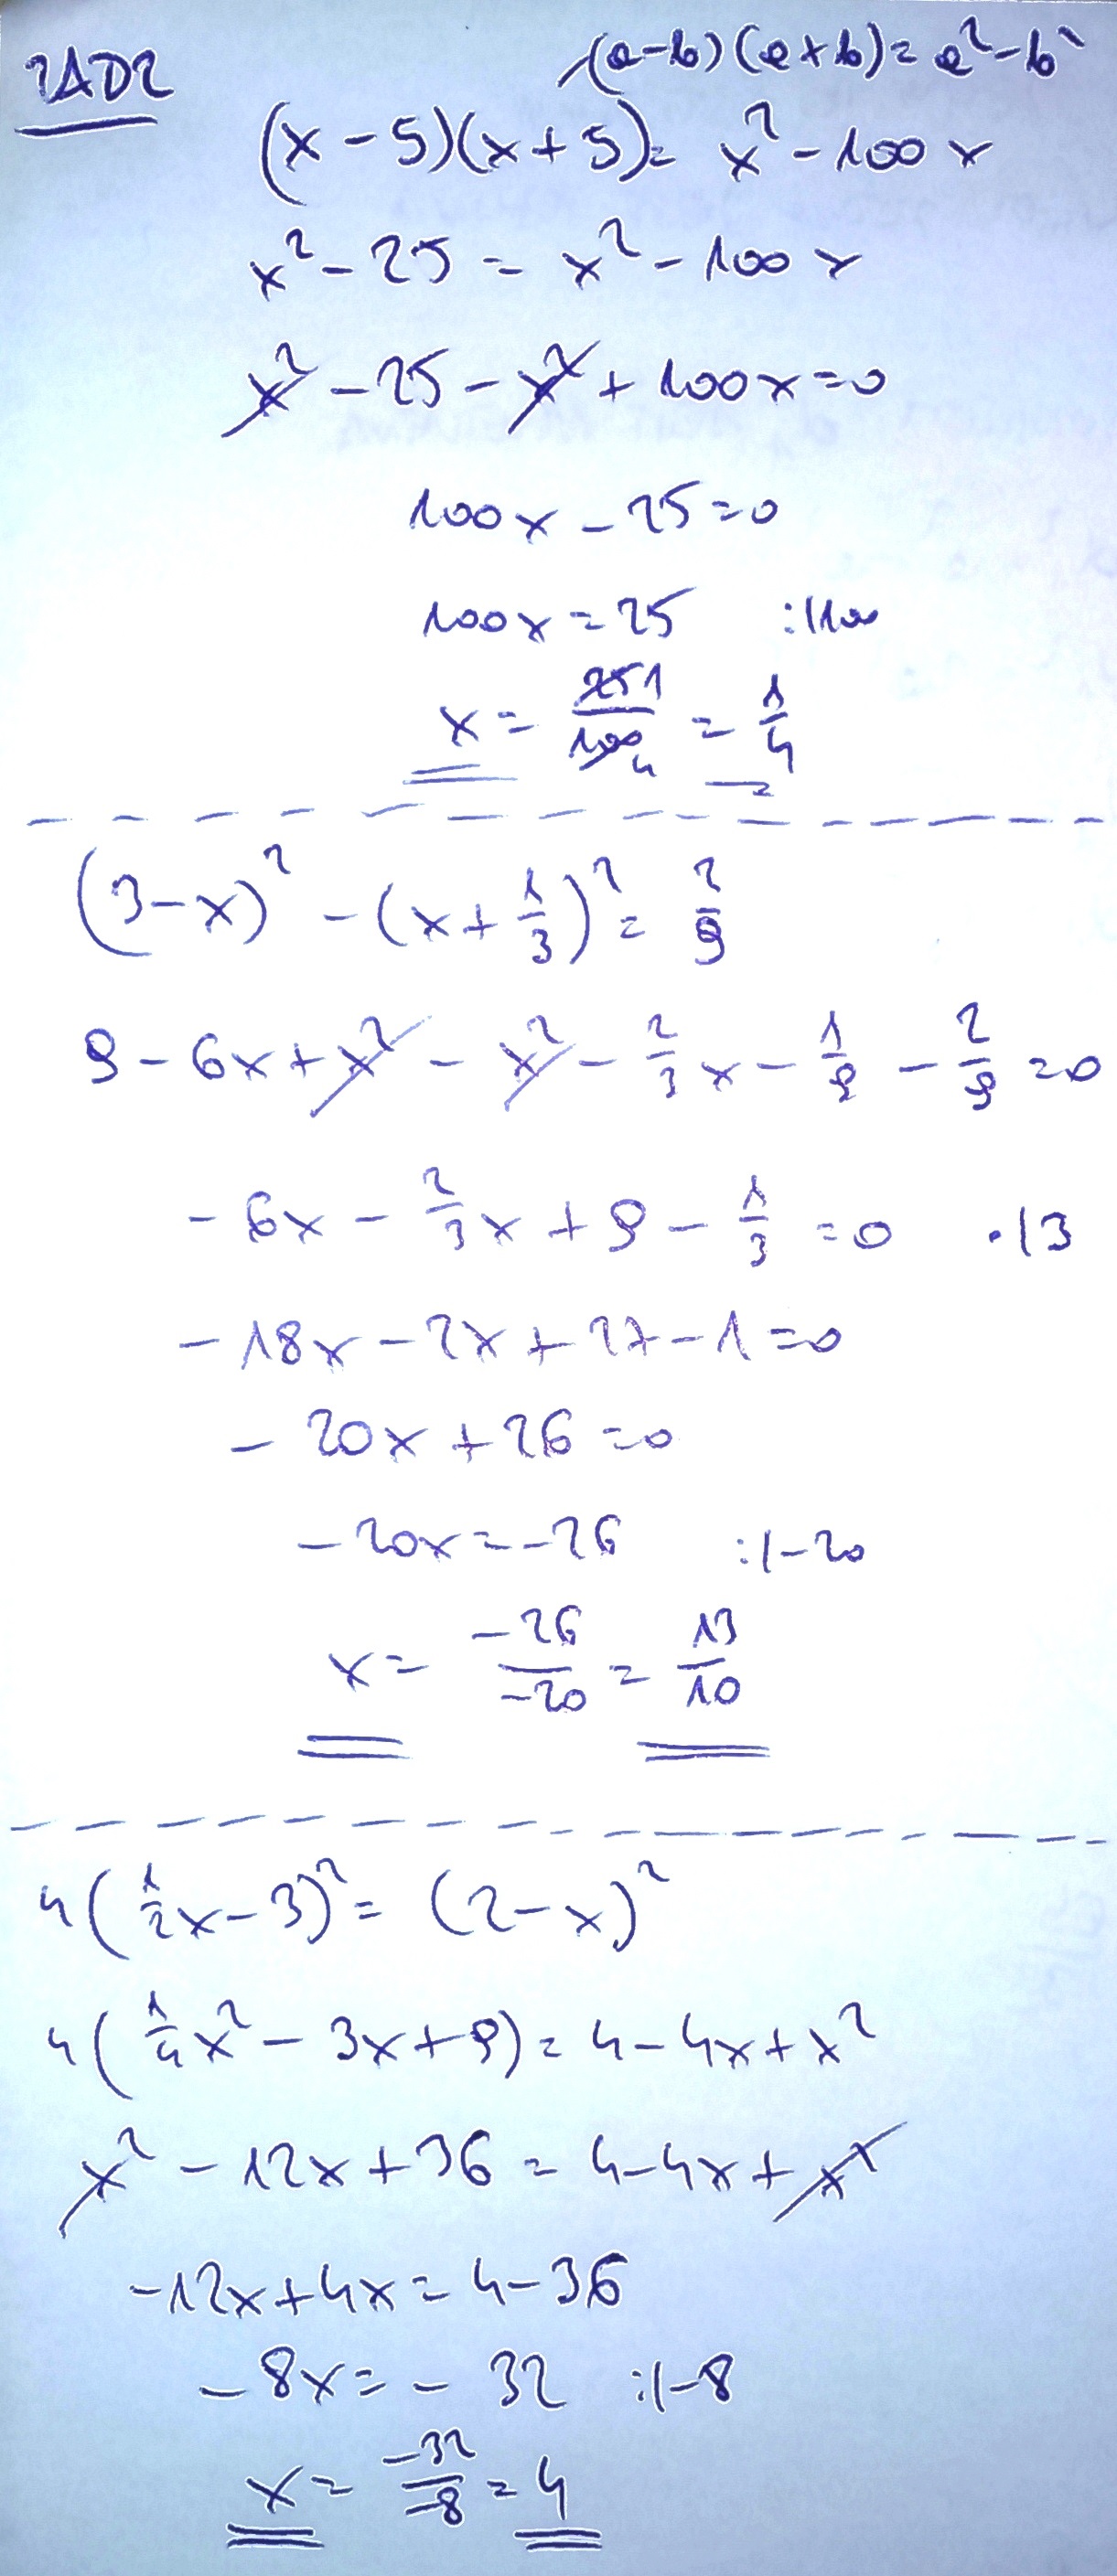 ZAD2
(a-b)(a+b)=a²-b²
(x-5)(x+5)=x²-100x
x²-25=x²-100x
x²-25-x²+100x=0
100x-25=0
100x=25 :|100
x=25/100=1/4
(3-x)²-(x+1/3)²=2/9
9-6x+x²-x²-2/3x-1/9-2/9=0
-6x-2/3x+9-1/3=0 ·|3
-18x-2x+27-1=0
-20x+26=0
-20x=-26 :|-20
x=-26/-20=13/10
4(1/2x-3)²=(2-x)²
4(1/4x²-3x+9)=4-4x+x²
x²-12x+36=4-4x+x²
-12x+4x=4-36
-8x=-32 :|-8
x=-32/-8=4